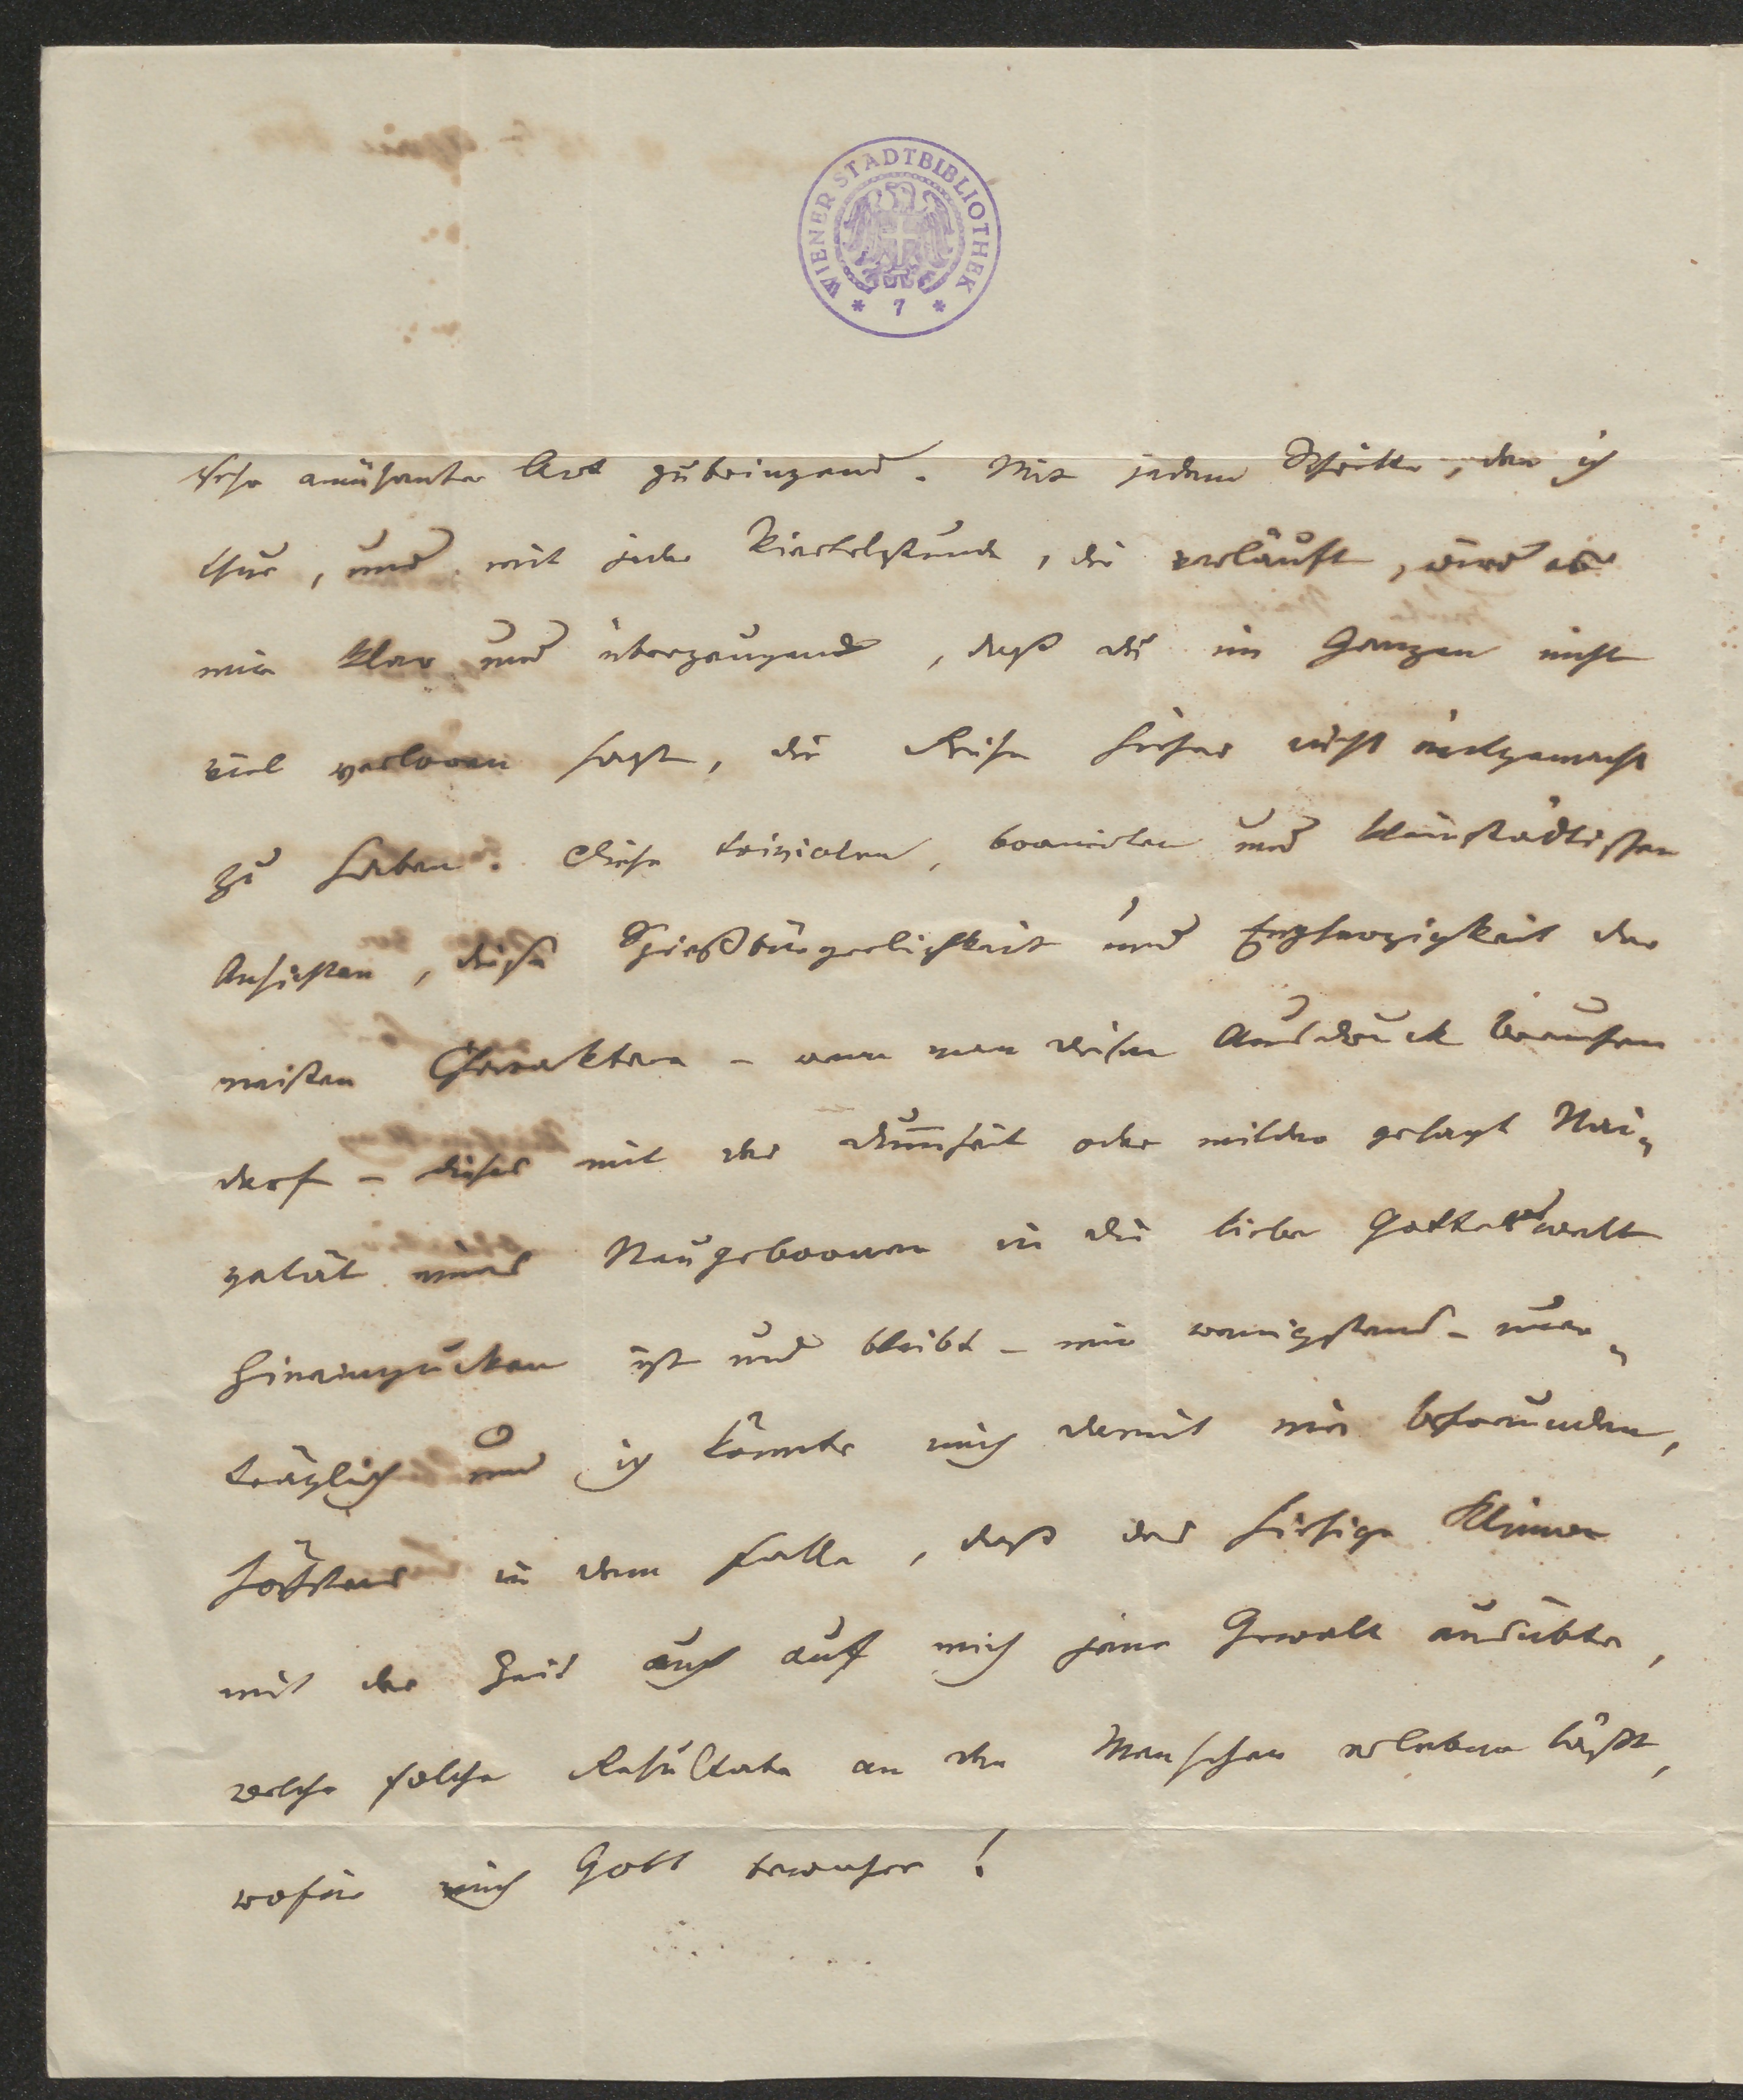 WIENER STADTBIBLIOTHEK
* 7 *
sehr amüsanter Art zubringend. Mit jedem Schritte, den ich
thue, und mit jeder Viertelstunde, die verläuft, wird es
mir klar und überzeugend, daß du im Ganzen nicht
viel verloren hast, die Reise hieher nicht mitgemacht
zu haben. Diese trivialen, bornirten und kleinstädtischen
Ansichten, diese Spießbürgerlichkeit und Engherzigkeit der
meisten Charaktere – wenn man diesen Ausdruck brauchen
darf – dieses mit der Dummheit oder milder gesagt Nai„
vetät eines Neugebornen in die liebe Gotteswelt
Hineingucken ist und bleibt – mir wenigstens – uner„
träglich und ich könnte mich damit nie befreunden,
höchstens in dem Falle, daß das hiesige Klima
mit der Zeit auch auf mich jene Gewalt ausübte,
welche solche Resultate an den Menschen erleben läßt,
wofür mich Gott bewahre!